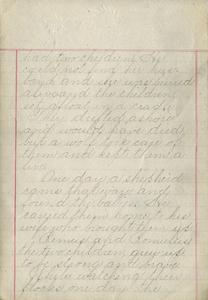 had two children. She
could not find her hus-
band and she was buried
alive and the children
set afloat in a cradle.
They drifted ashore
and would have died,
but a wolf took care of
them and kept them a
live.
One day a shepherd
came that way and
found the babies. He
carried them home to his
wife who brought them up.
Remus and Romulus
the two children grew up
to be strong and brave
men watching their
flocks one day the